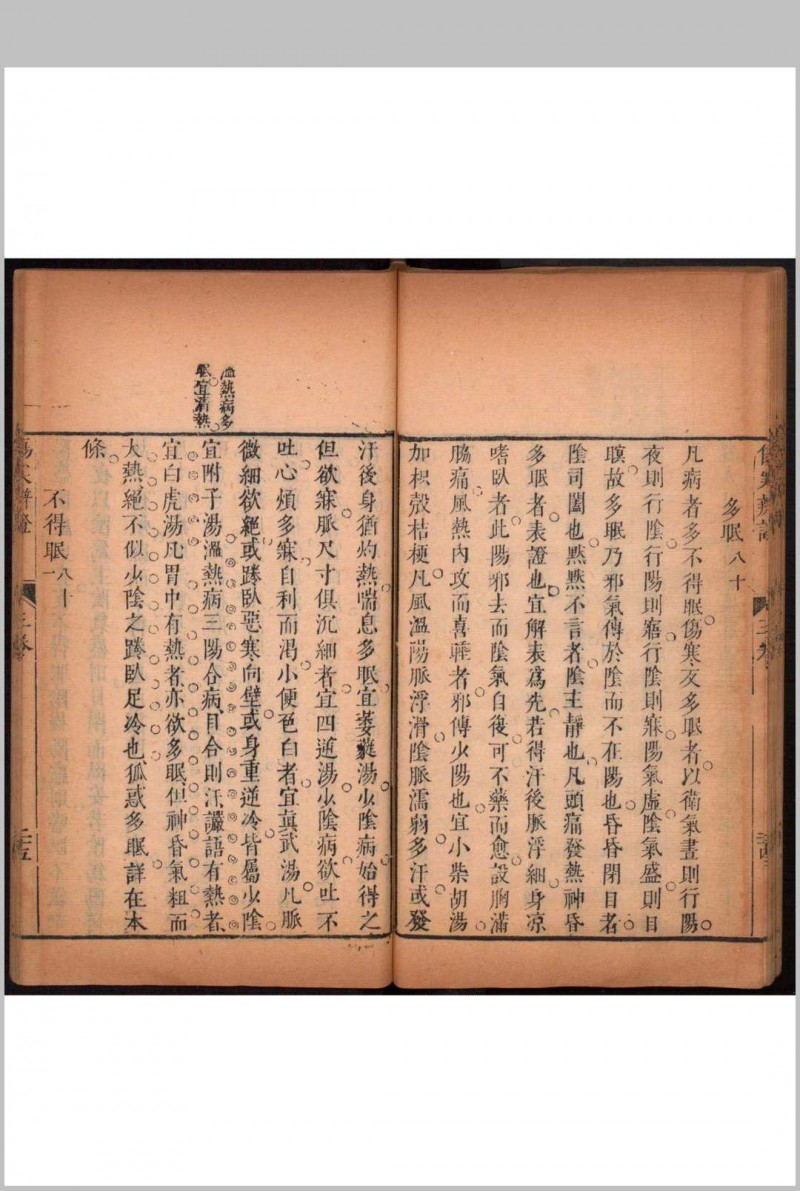 多眠八十
凡病者多不得眠傷寒反多眠者以衛氣晝則行陽
夜則行陰行陽則寤行陰則寐陽氣虛陰氣盛則目
瞑故多眠乃邪氣傳於陰而不在陽也昏昏閉目者
陰司闔也黙黙不言者陰主靜也凡頭痛發熱神昏
多眠者表證也宜解表爲先若得汗後脈浮細身凉
嗜臥者此陽邪去而陰氣自後可不藥而愈設胸滿
脇痛風熱內攻而喜睡者邪傳少陽也宜小柴胡湯
加枳殼桔梗凡風溫陽脈浮滑陰脈濡弱多汗或發
汗後身猶灼熱喘息多眠宜萎蕤湯少陰病始得之
但欲寐脈尺寸俱沉細者宜四逆湯少陰病欲吐不
吐心煩多寐自利而渴小便色白者宜真武湯凡脈
微細欲絕或踡臥惡寒向壁或身重逆冷皆屬少陰
宜附子湯溫熱病三陽合病目合則汗讝語有熱者
宜白虎湯凡胃中有熱者亦欲多眠但神昏氣粗而
大熱絕不似少陰之踡臥足冷也狐惑多眠詳在本
條
不得眠八十一
溫熱病多
眠宜清熱
傷寒辨證
三卷